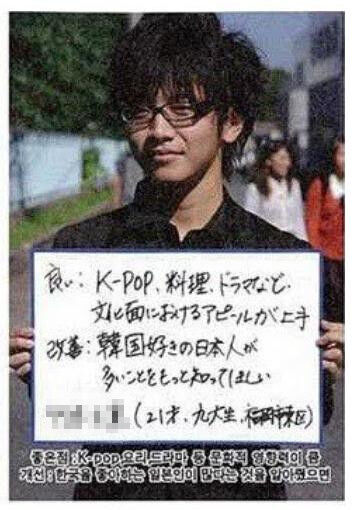 良い：K-POP、料理、ドラマなど、
文化面におけるアピールが上手
改善：韓国好きの日本人が
多いことをもっと知ってほしい
(21才、九大生、福岡市東区)
좋은점:K-pop,요리,드라마 등 문화적 영향력이 큼
개선:한국을 좋아하는 일본인이 많다는 것을 알아줬으면